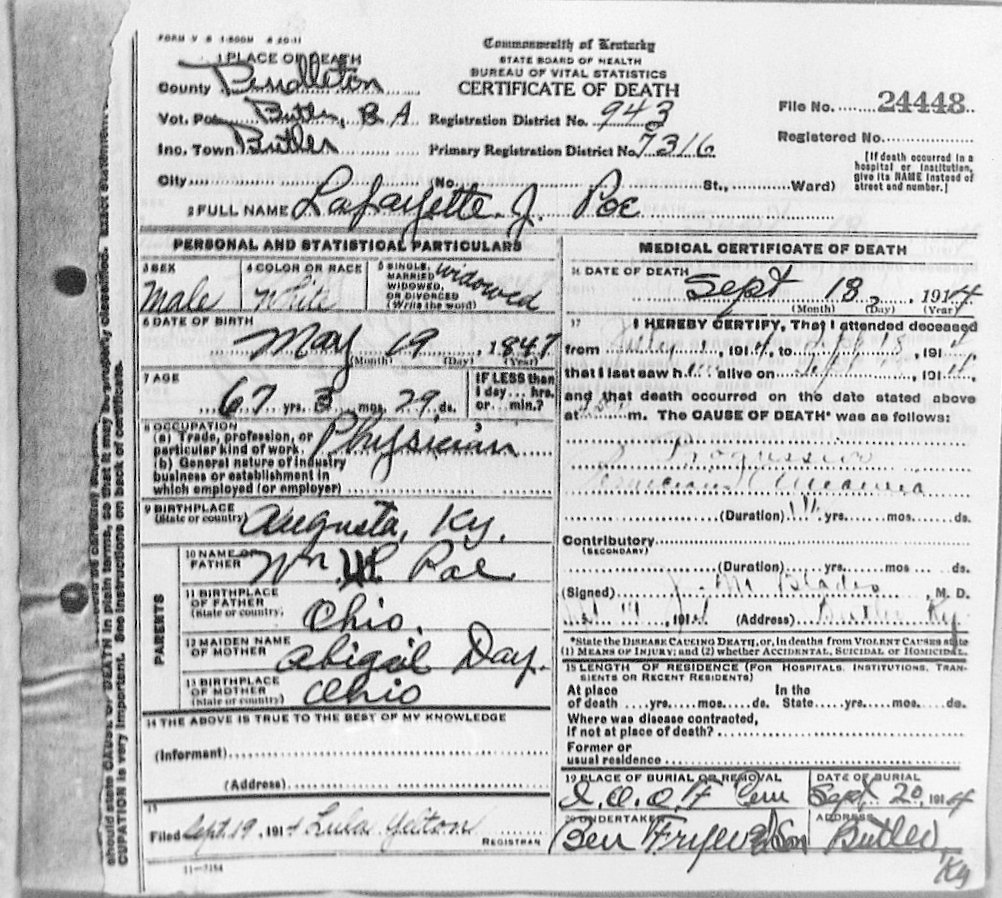 FORM V S 1-500M 8 20-11
Commonwealth of Kentucky
STATE BOARD OF HEALTH
BUREAU OF VITAL STATISTICS
CERTIFICATE OF DEATH
1 PLACE OF DEATH
County Pendleton
Vot. Pct. Butler, B A Registration District No. 943
File No. 24448
Inc. Town Butler Primary Registration District No. 7316
Registered No.
City No. St., Ward)
[If death occurred in a
hospital or institution,
give its NAME instead of
street and number.]
2 FULL NAME Lafayette J. Poe
PERSONAL AND STATISTICAL PARTICULARS
3 SEX
Male
4 COLOR OR RACE
White
5 SINGLE,
MARRIED
WIDOWED,
OR DIVORCED
(Write the word)
widowed
6 DATE OF BIRTH
May 19, 1847
(Month) (Day) (Year)
7 AGE
67 yrs. 3 mos. 29 ds.
IF LESS than
1 day... hrs.
or... min.?
8 OCCUPATION
(a) Trade, profession, or
particular kind of work. Physician
(b) General nature of industry
business or establishment in
which employed (or employer)
9 BIRTHPLACE
(State or country) Augusta, Ky.
PARENTS
10 NAME OF
FATHER Wm. Poe
11 BIRTHPLACE
OF FATHER
(State or country) Ohio.
12 MAIDEN NAME
OF MOTHER Abigail Day.
13 BIRTHPLACE
OF MOTHER
(State or country) Ohio
14 THE ABOVE IS TRUE TO THE BEST OF MY KNOWLEDGE
(Informant)
(Address)
15
Filed Sept. 19, 1914 Lula Yelton
REGISTRAR
11-3184
MEDICAL CERTIFICATE OF DEATH
16 DATE OF DEATH
Sept 18, 1914
(Month) (Day) (Year)
17 I HEREBY CERTIFY, That I attended deceased
from 1, 1914, to Sept 18, 191
that I last saw h alive on Sept, 191
and that death occurred on the date stated above
at m. The CAUSE OF DEATH* was as follows:
Progressive
(Duration) yrs. mos. ds.
Contributory
(SECONDARY)
(Duration) yrs. mos. ds.
(Signed) , M. D.
, 191 (Address) Butler Ky
*State the DISEASE CAUSING DEATH, or, in deaths from VIOLENT CAUSES state
(1) MEANS OF INJURY; and (2) whether ACCIDENTAL, SUICIDAL or HOMICIDAL.
18 LENGTH OF RESIDENCE (FOR HOSPITALS, INSTITUTIONS, TRAN-
SIENTS OR RECENT RESIDENTS)
At place In the
of death yrs. mos. ds. State yrs. mos. ds.
Where was disease contracted,
If not at place of death?
Former or
usual residence
19 PLACE OF BURIAL OR REMOVAL
I.O.O.F Cem
DATE OF BURIAL
Sept. 20, 1914
20 UNDERTAKER
Ben Fryer & Son
ADDRESS
Butler
Ky
should state CAUSE OF DEATH in plain terms, so that it may be properly classified. Exact statement
CUPATION is very important. See instructions on back of certificate.